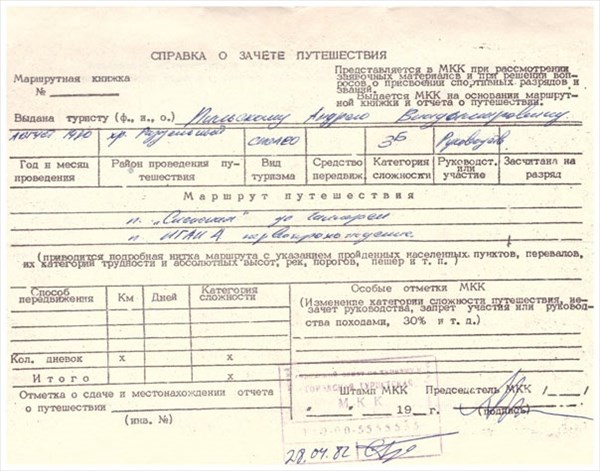 СПРАВКА О ЗАЧЕТЕ ПУТЕШЕСТВИЯ
Маршрутная книжка
№
Представляется в МКК при рассмотрении
заявочных материалов и при решении воп-
росов о присвоении спортивных разрядов и
званий.
Выдается МКК на основании маршрут-
ной книжки и отчета о путешествии.
Выдана туристу (ф., и., о.) Андрею Владимировичу
август 1980 хр. спелео 3Б Руководство
Год и месяц проведения
Район проведения пу-тешествия
Вид туризма
Средство передвиж.
Категория сложности
Руководст. или участие
Засчитана на разряд
Маршрут путешествия
п. до
п. первопрохождение
(приводится подробная нитка маршрута с указанием пройденных населенных пунктов, перевалов,
их категории трудности и абсолютных высот, рек, порогов, пещер и т. п. )
Способ передвижения
Км
Дней
Категория сложности
Особые отметки МКК
(Изменение категории сложности путешествия, не-
зачет руководства, запрет участия или руковод-
ства походами, 30% и т. д.)
Кол. дневок х х
Итого х
Отметка о сдаче и местонахождении отчета
о путешествии
(инв. №)
Штамп МКК Председатель МКК / /
" " 19 г. (подпись)
МКК
28.04.82